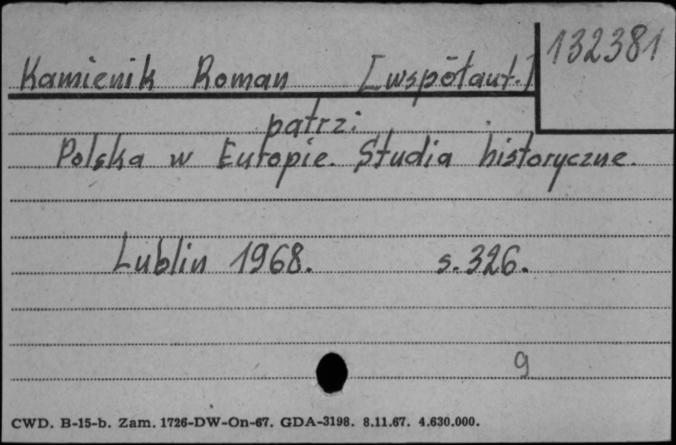 132381
Kamienik Roman [współaut.]
patrz:
Polska w Europie. Studia historyczne.
Lublin 1968. s. 326.
g
CWD. B-15-b. Zam. 1726-DW-On-67. GDA-3198. 8.11.67. 4.630.000.